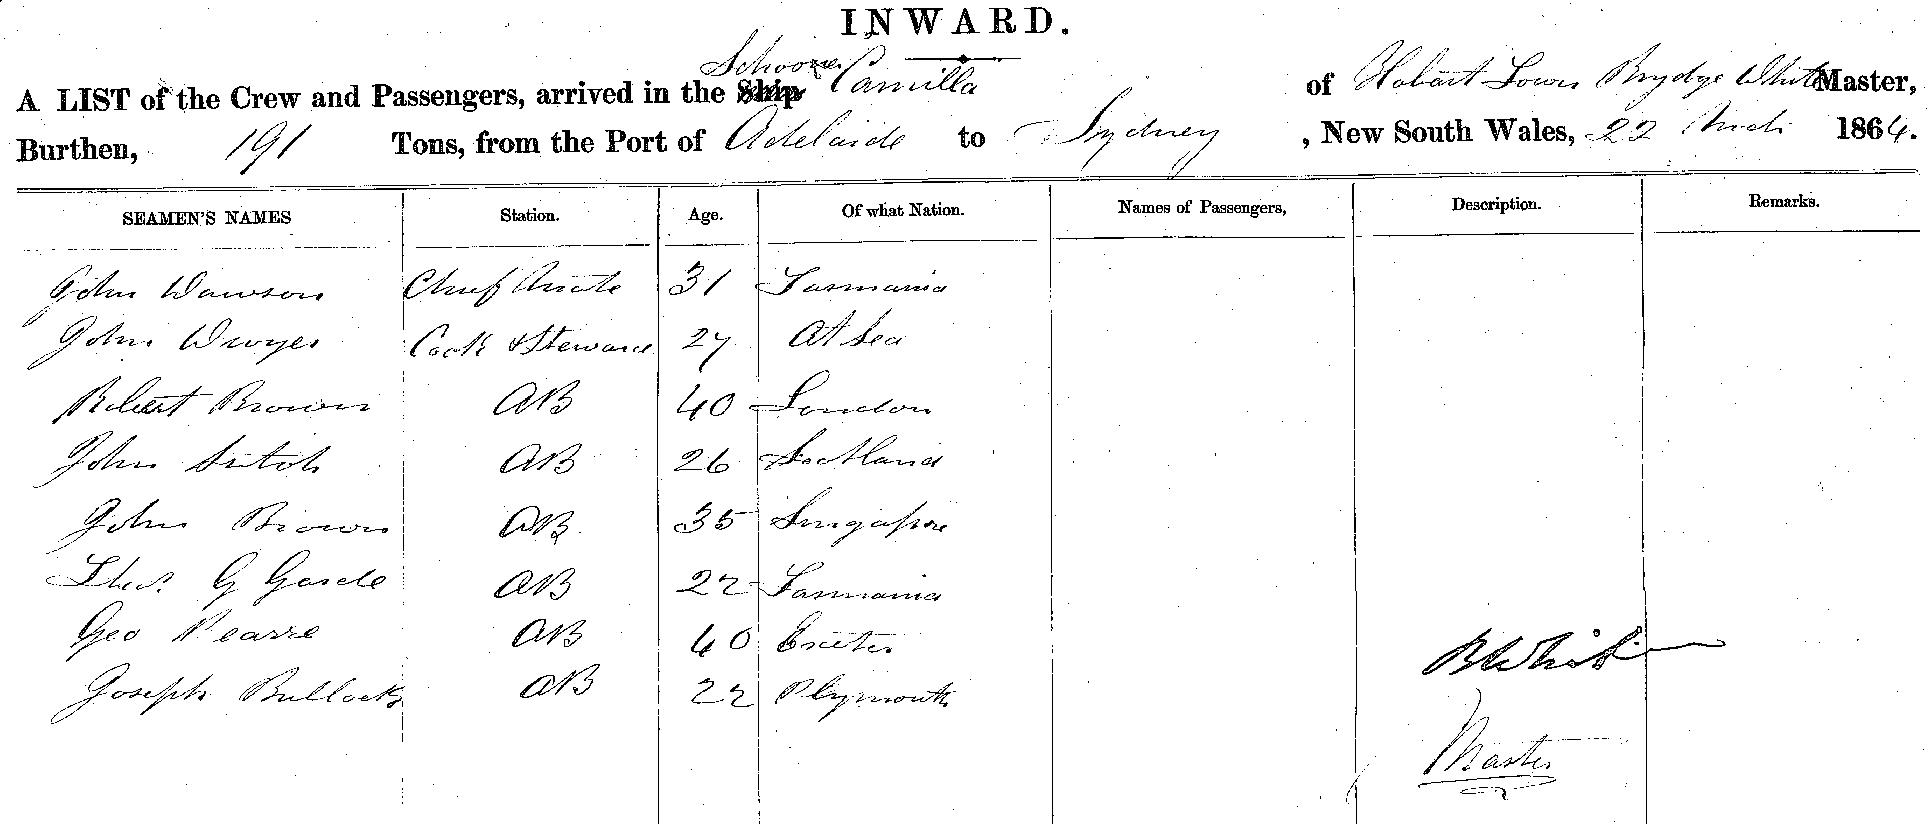 INWARD.
Schooner
A LIST of the Crew and Passengers, arrived in the Ship Camilla of Hobart Town Brydge White Master,
Burthen, 191 Tons, from the Port of Adelaide to Sydney, New South Wales, 22 March 1864.
SEAMEN'S NAMES Station. Age. Of what Nation. Names of Passengers, Description. Remarks.
John Dawson Chief Mate 31 Tasmania
John Dwyer Cook & Steward 27 At Sea
Robert Brown AB 40 London
John AB 26 Scotland
John Brown AB 35 Singapore
Thos. G AB 22 Tasmania
Geo Pearse AB 40 Exeter
B White
Joseph Bullock AB 22 Plymouth
Master